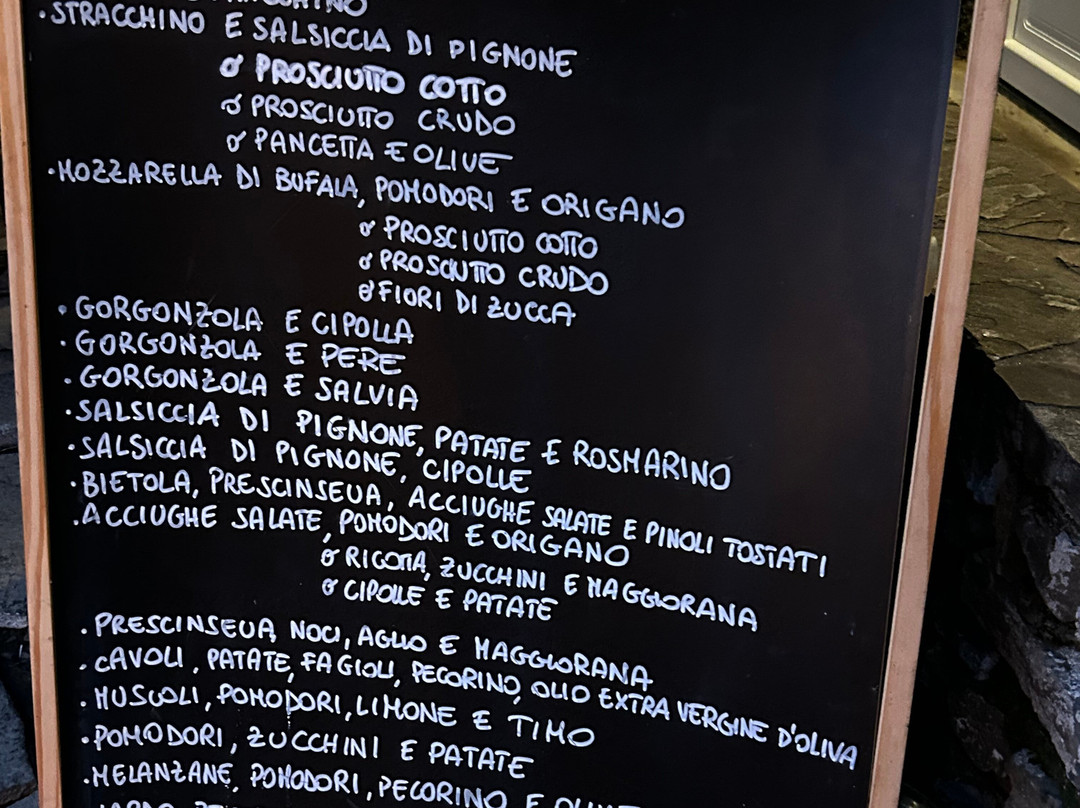 ·STRACCHINO E SALSICCIA DI PIGNONE
o PROSCIUTTO COTTO
o PROSCIUTTO CRUDO
o PANCETTA E OLIVE
·MOZZARELLA DI BUFALA, POMODORI E ORIGANO
o PROSCIUTTO COTTO
o PROSCIUTTO CRUDO
o FIORI DI ZUCCA
·GORGONZOLA E CIPOLLA
·GORGONZOLA E PERE
·GORGONZOLA E SALVIA
·SALSICCIA DI PIGNONE, PATATE E ROSMARINO
·SALSICCIA DI PIGNONE, CIPOLLE
·BIETOLA, PRESCINSEUA, ACCIUGHE SALATE E PINOLI TOSTATI
·ACCIUGHE SALATE, POMODORI E ORIGANO
o RICOTTA, ZUCCHINI E MAGGIORANA
o CIPOLLE E PATATE
·PRESCINSEUA, NOCI, AGLIO E MAGGIORANA
·CAVOLI, PATATE, FAGIOLI, PECORINO, OLIO EXTRA VERGINE D'OLIVA
·MUSCOLI, POMODORI, LIMONE E TIMO
·POMODORI, ZUCCHINI E PATATE
·MELANZANE, POMODORI, PECORINO E